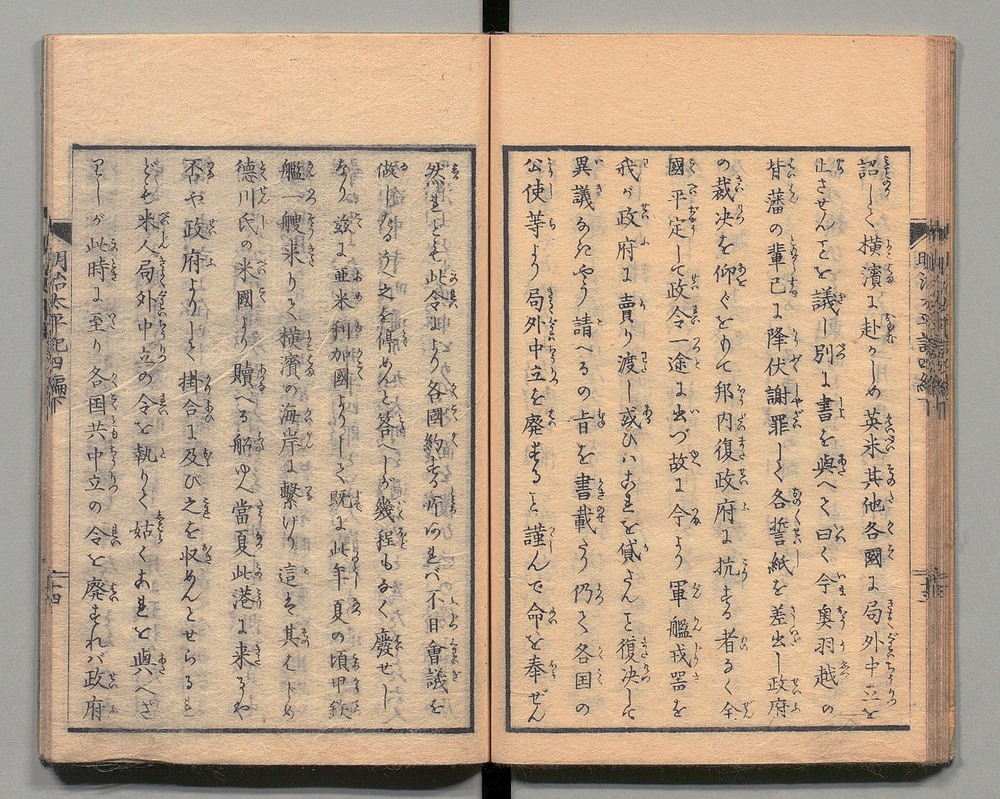 詔して横濱に赴かしめ英米其他各國に局外中立を
止させんことを議し別に書を與へて曰く今奥羽越の
背藩の輩已に降伏謝罪して各誓紙を差出し政府
の裁决を仰ぐをもて邦内復政府に抗する者なく全
國平定して政令一途に出づ故に今より軍艦戎器を
我が政府に賣り渡し或ひハこれを貸さんこと復决して
異議なきやう請へるの旨を書載たり仍て各国の
公使等より局外中立を廢すること謹んで命を奉ぜん
然れども此令より各國約する所あれバ不日會議を
做しかる後之を停めんと答へしが幾程もなく廢せし
なり茲に亜米利加國よりして既に此年夏の頃甲鉄
艦一艘来りて横濱の海岸に繋けり這そ其はじめ
德川氏の米國より贖へる船ゆゑ當夏此港に来るや
否や政府よりして掛合に及び之を収めんとせらるれ
ども米人局外中立の令を執りて姑くこれを與へざ
りしが此時に至り各国共中立の令を廢すれバ政府
明治太平記四編下
十四